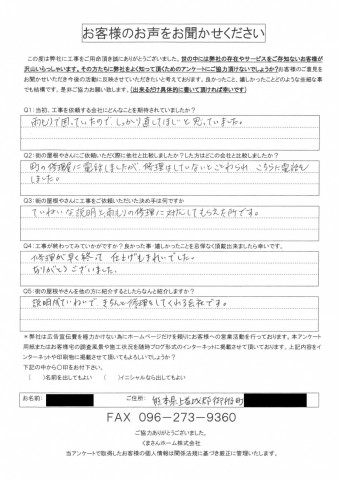 お客様のお声をお聞かせください
この度は弊社に工事をご用命頂き誠にありがとうございました。世の中には弊社の存在やサービスをご存知ないお客様が
沢山いらっしゃいます。その方たちに弊社をよく知って頂くためのアンケートにご協力頂けないでしょうか?お客様のご意見を
お聞かせいただき今後の活動に反映させていただきたいと考えております。良かったこと、嬉しかったことどのような些細な事
でも結構です。是非ご協力お願い致します。(出来るだけ具体的に書いて頂ければ幸いです)
Q1:当初、工事を依頼する会社にどんなことを期待されていましたか?
雨もりで困っていたので、しっかり直してほしいと思っていました。
Q2:街の屋根やさんにご依頼いただく際に他社と比較しましたか?した方はどこの会社と比較しましたか?
町の修理屋に電話しましたが、修理はしていないとことわられ こちらに電話を
しました。
Q3:街の屋根やさんにご依頼いただいた決め手は何ですか
ていねいな説明と雨もりの修理に対応してもらえた所です。
Q4:工事が終わってみていかがですか?良かった事・嬉しかったことを忌憚なく頂戴出来ましたら幸いです。
修理が早く終って 仕上げもきれいでした。
ありがとうございました。
Q5:街の屋根やさんを他の方に紹介するとしたらなんと紹介しますか?
説明がていねいで きちんと修理をしてくれる会社です。
*弊社は広告宣伝費を極力かけない為にホームページだけを頼りにお客様への営業活動を行っております。本アンケート
用紙またはお客様宅の調査風景や施工状況を随時ブログ形式のインターネットに掲載させて頂いております。上記内容をイ
ンターネットや印刷物に掲載させて頂いてもよろしいでしょうか?
下記の中から〇印をお付下さい。
( )名前を出してもよい ( )イニシャルなら出してもよい
お名前: ご住所: 熊本県上益城郡御船町
FAX 096-273-9360
ご協力ありがとうございました。
くまさんホーム株式会社
当アンケートで取得したお客様の個人情報は関係法規に基づき厳正に管理いたします。